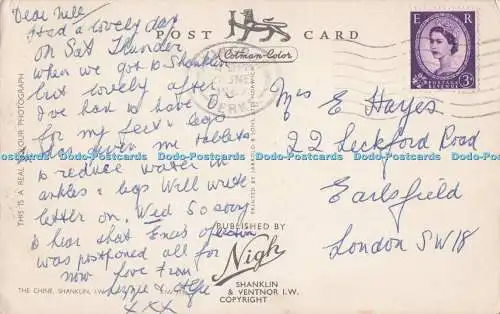 Dear Nell
Had a lovely day
on Sat Thunder
when we got to Shanklin
but lovely after
I've had to have
for my feet & legs
given me tablets
to reduce water in
ankles & legs Will write
letter on Wed So sorry
to hear that Ena's
was postponed all for
now love from
& Alfie
x x x
THE CHINE, SHANKLIN, I.W.
THIS IS A REAL COLOUR PHOTOGRAPH
POST CARD
Cotman-Color
PUBLISHED BY
Nigh
SHANKLIN
& VENTNOR I.W.
COPYRIGHT
E R
3D
POSTAGE REVENUE
Mrs E Hayes
22 Leckford Road
Earlsfield
London SW18
Dodo-Postcards Dodo-Postcards Dodo-Postcards Dodo-Postcards Dodo-Postcards Dodo-Postcards